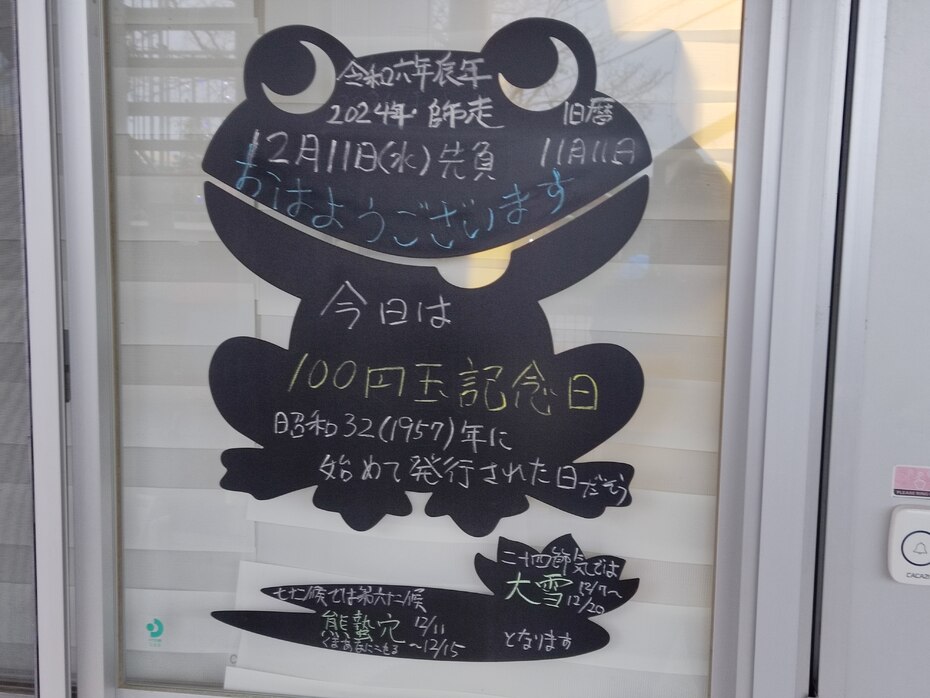 令和六年辰年
2024年・師走 旧暦
12月11日(水)先負 11月11日
おはようございます
今日は
100円玉記念日
昭和32(1957)年に
始めて発行された日だそう
二十四節気では
大雪 12/7〜
12/20
となります
七十二候では第六十二候
熊蟄穴 12/11
くまあなにこもる 〜12/15
PLEASE RING